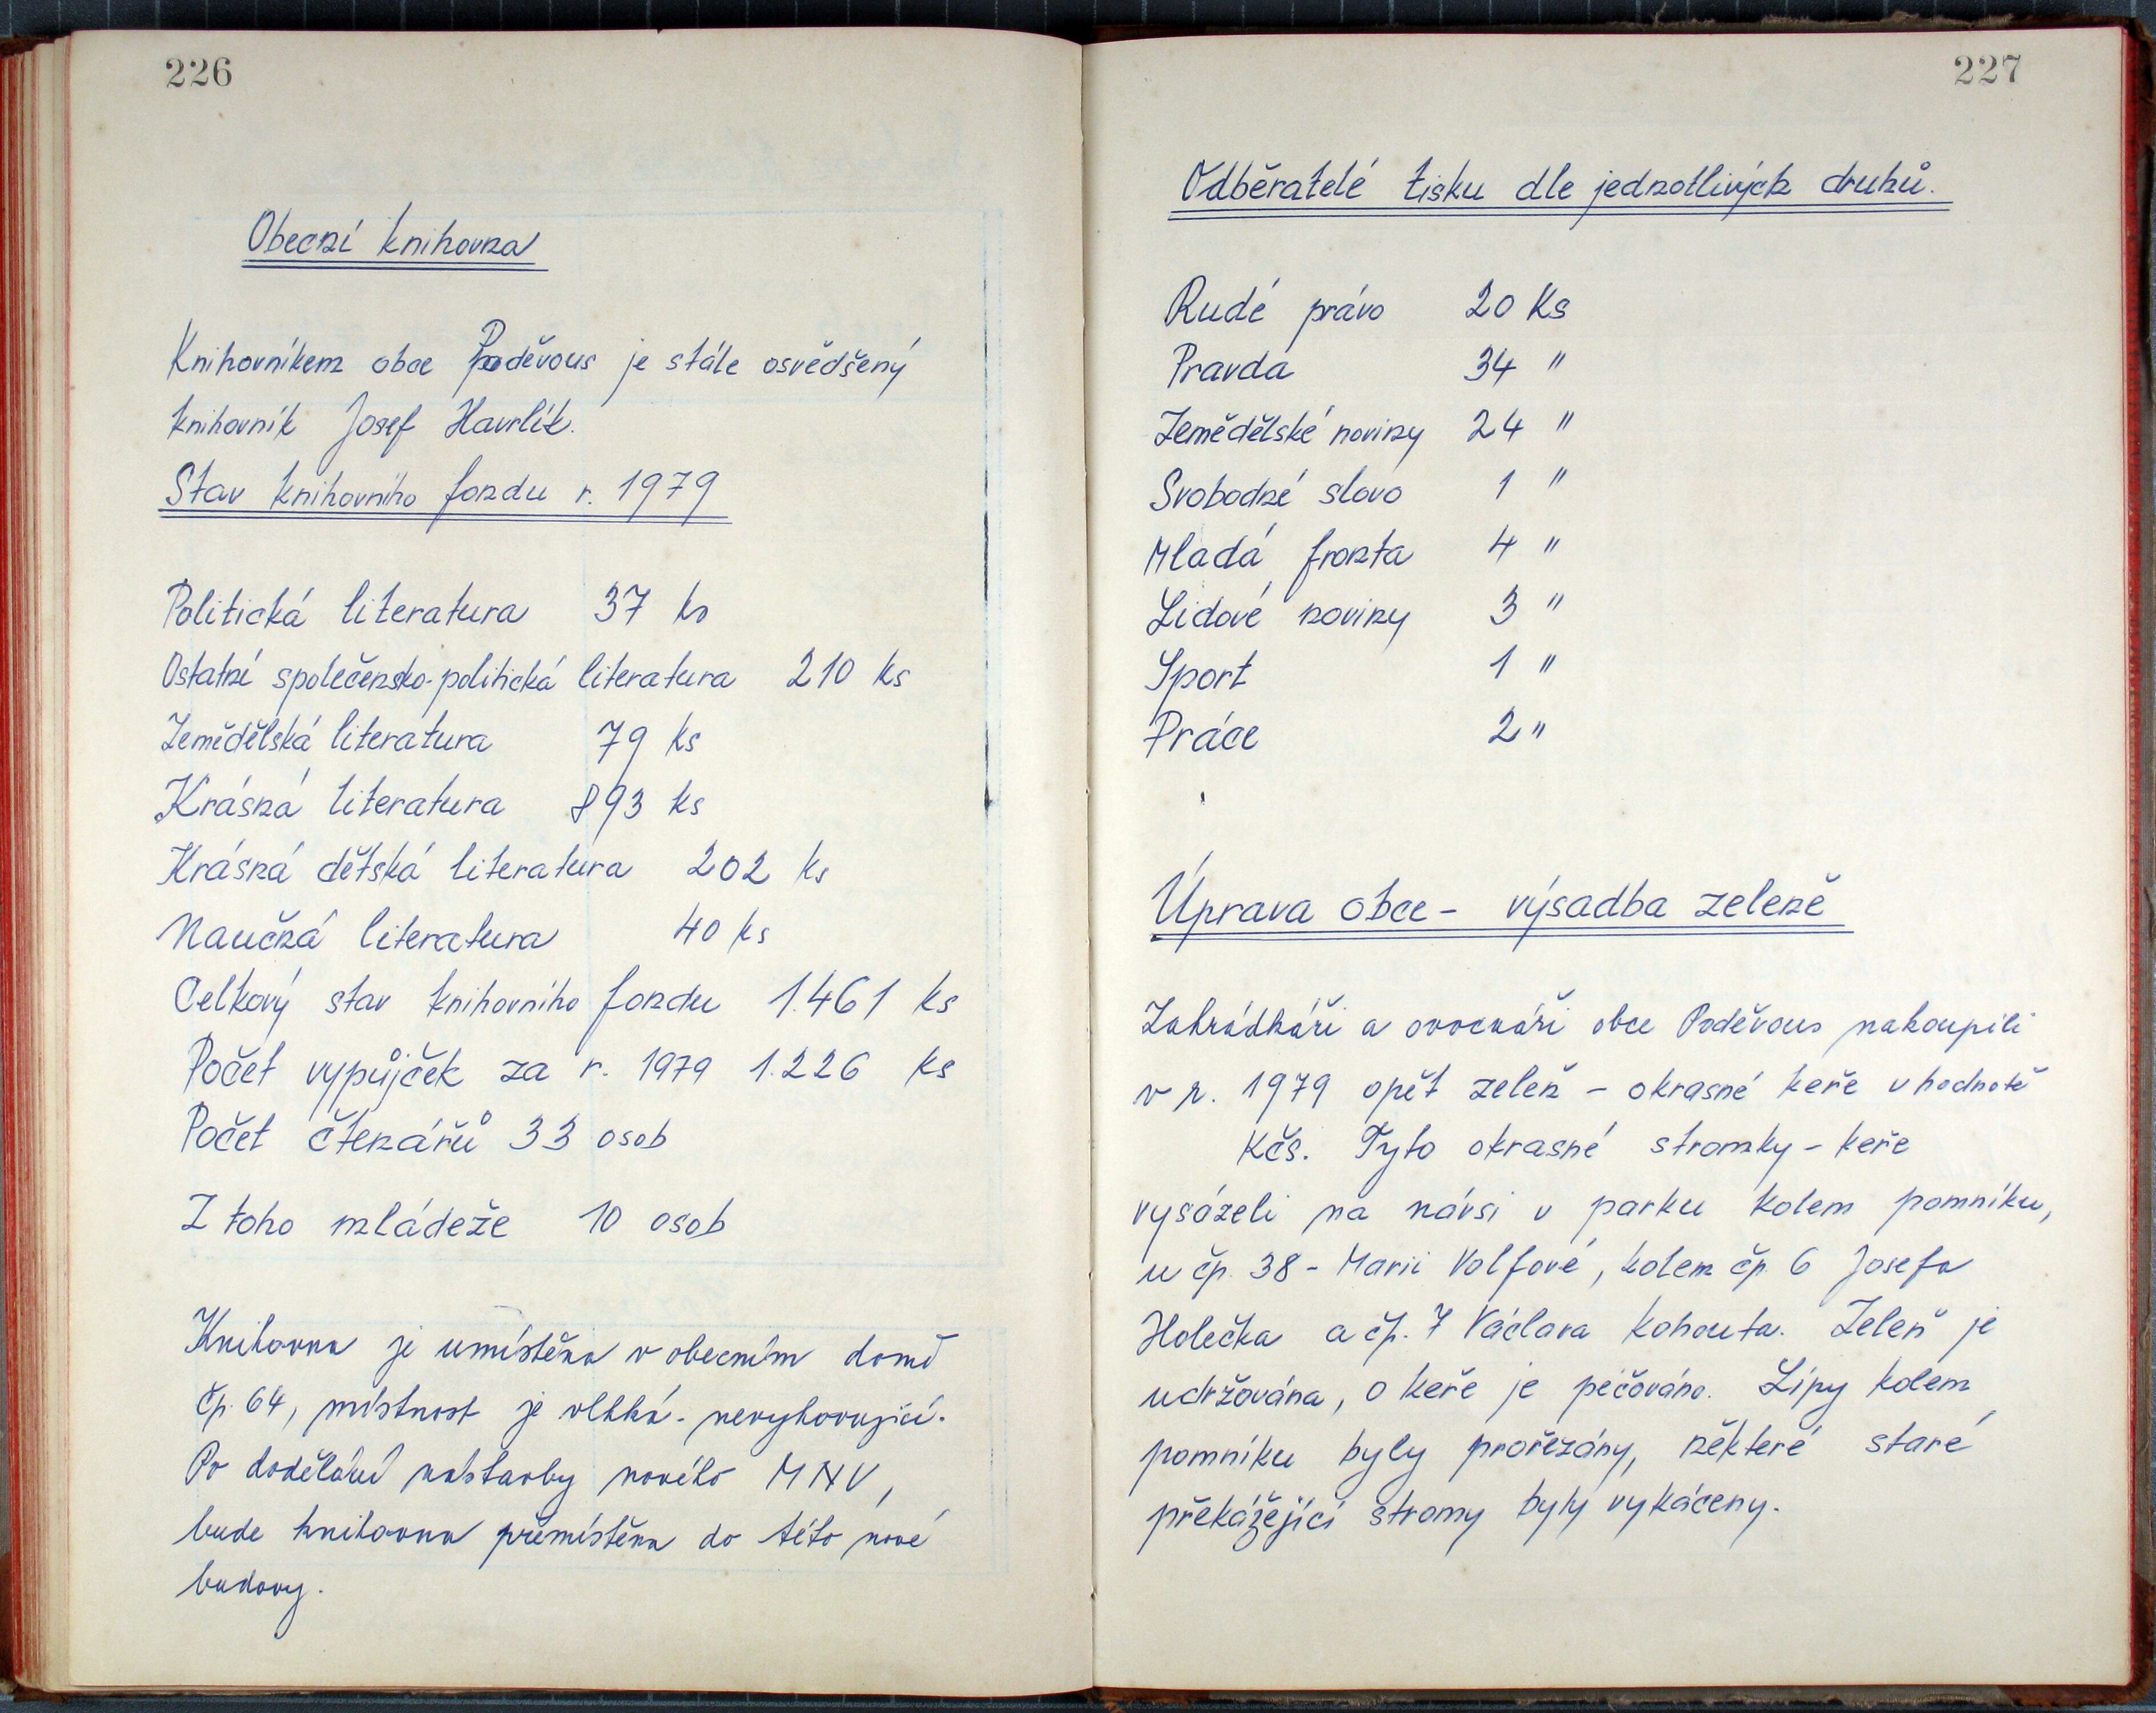 226
Obecní knihovna
Knihovníkem obce Poděvous je stále osvědšený
knihovník Josef Havrlík.
Stav knihovního fondu r. 1979
Politická literatura 37 ks
Ostatní společensko-politická literatura 210 ks
Zemědělská literatura 79 ks
Krásná literatura 893 ks
Krásná dětská literatura 202 ks
Naučná literatura 40 ks
Celkový stav knihovního fondu 1.461 ks
Počet vypůjček za r. 1979 1.226 ks
Počet čtenářů 33 osob
Z toho mládeže 10 osob
Knihovna je umístěna v obecním domě
čp. 64, místnost je vlhká - nevyhovující.
Po dodělání nástavby nového MNV,
bude knihovna přemístěna do této nové
budovy.
227
Odběratelé tisku dle jednotlivých druhů.
Rudé právo 20 Ks
Pravda 34 "
Zemědělské noviny 24 "
Svobodné slovo 1 "
Mladá fronta 4 "
Lidové noviny 3 "
Sport 1 "
Práce 2 "
Úprava obce - výsadba zeleně
Zahrádkáři a ovocnáři obce Poděvous nakoupili
v r. 1979 opět zeleň - okrasné keře v hodnotě
Kčs. Tyto okrasné stromky - keře
vysázeli na návsi v parku kolem pomníku,
u čp. 38 - Marii Volfové, kolem čp. 6 Josefa
Holečka a čp. 7 Václava Kohouta. Zeleň je
udržována, o keře je péčováno. Lípy kolem
pomníku byly prořezány, některé staré
překážející stromy byly vykáceny.